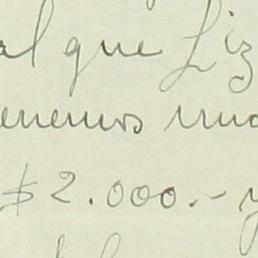 al que Liz
enemos mu
$2.000.- y